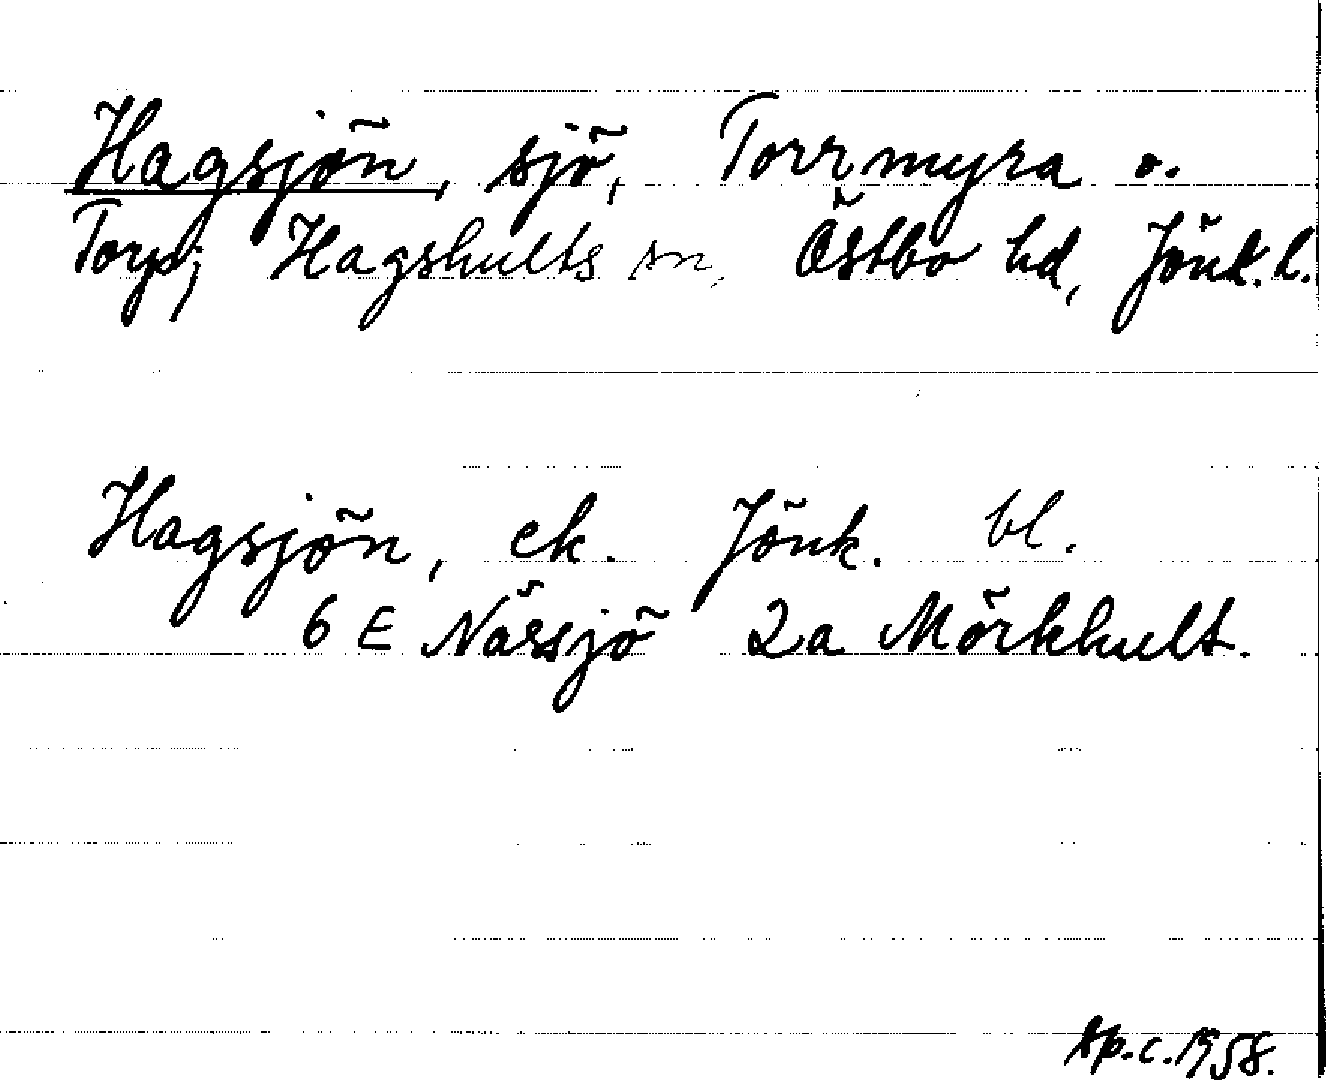 Hagsjön, sjö, Torrmyra o.
Torp; Hagshults sn, Östbo hd, Jönk. l.
Hagsjön, ek. Jönk. bl.
6 E Nässjö 2a Mörkhult.
Sp.c. 1958.